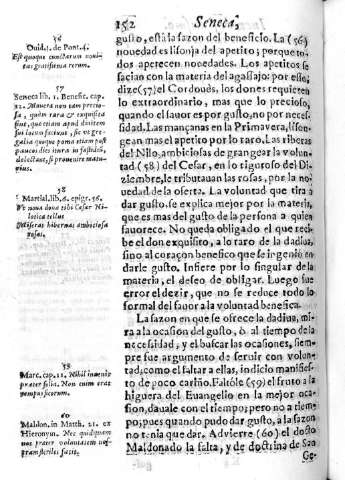 152 Seneca,
gusto, està la sazon del beneficio. La (56)
nouedad es lisonja del apetito; porque to-
dos apetecen nouedades. Los apetitos se
sacian con la materia del agassajo: por esso
dize (57) el Cordoués, los dones requieren
lo extraordinario, mas que lo precioso,
quando el fauor es por gusto, no por neces-
sidad. Las mançanas en la Primauera, lison-
gean mas el apetito por lo raro. Las riberas
del Nilo, ambiciosas de grangear la volun-
tad (58) del Cesar, en lo riguroso del Di-
ziembre, le tributauan las rosas, por la no-
uedad de la oferta. La voluntad que tira a
dar gusto, se explica mejor por la materia,
que es mas del gusto de la persona a quien
fauorece. No queda obligado el que reci-
be el don exquisito, a lo raro de la dadiua,
sino al coraçon benefico que se ingenió en
darle gusto. Infiere por lo singular de la
materia, el deseo de obligar. Luego fue
error el dezir, que no se reduce todo lo
formal del fauor a la voluntad benefica.
La sazon en que se ofrece la dadiua, mi-
ra a la ocasion del gusto, ò al tiempo de la
necessidad, y el buscar las ocasiones, siem-
pre fue argumento de seruir con volun-
tad; como el faltar a ellas, indicio manifies-
to de poco cariño. Faltóle (59) el fruto a la
higuera del Euangelio en la mejor oca-
sion, dauale con el tiempo; pero no a tiem-
po; pues quando pudo dar gusto, a la sazon
no tenia que dar. Aduierte (60) el docto
Maldonado la falta, y de doctrina de San
Ge-
56
Ouid. 1. de Pont. 4.
Est quoque cunctarum noui-
tas gratissima rerum.
57
Seneca lib. 1. Benefic. cap.
12. Munera non tam pretio-
sa, quàm rara & exquisita
58
Martial. lib. 6. epigr. 56.
hibernas ambitiosa
rosas.
59
Marc. cap. 11. Nihil inuenit
præter folia. Non enim erat
tempus ficorum.
60
Maldon. in Matth. 21. ex
Hieronym. Nec quidquam